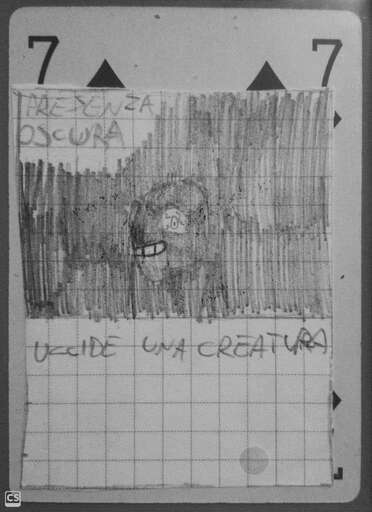 7 7
PRESENZA
OSCURA
UCCIDE UNA CREATURA
CS